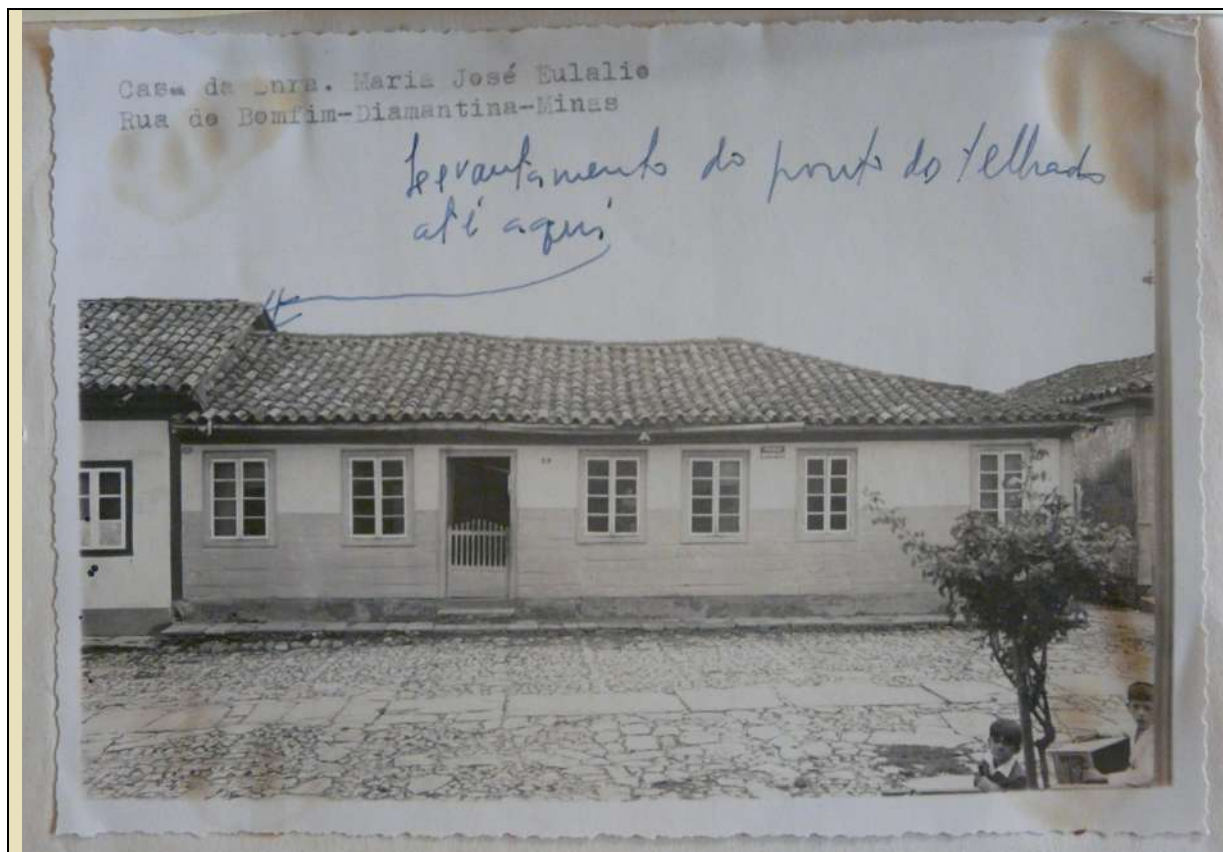 Casa da Snra. Maria José Eulalio
Rua do Bomfim-Diamantina-Minas
Levantamento do ponto do telhado
até aqui